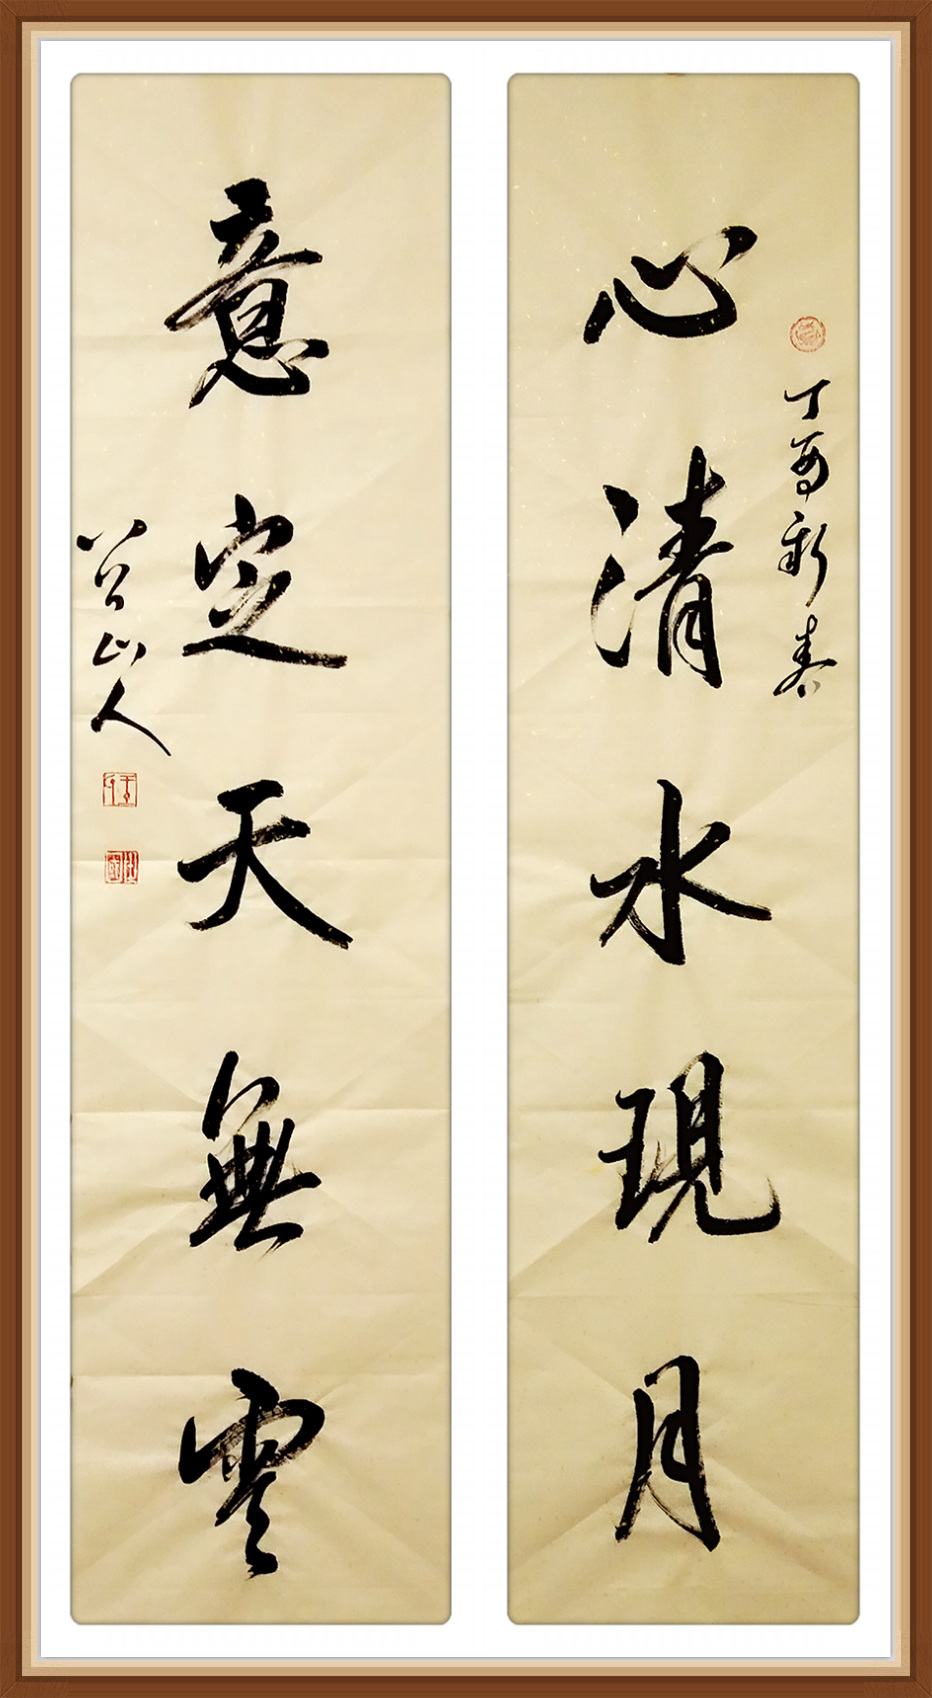 丁酉新春
心清水現月
意定天無雲
八公山人